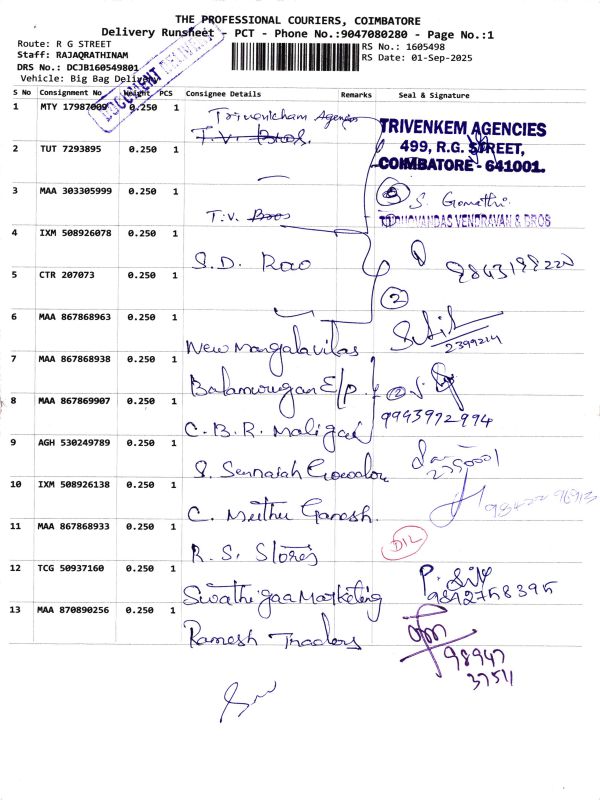 THE PROFESSIONAL COURIERS, COIMBATORE
Delivery Runsheet - PCT - Phone No.:9047080280 - Page No.:1
Route: R G STREET
RS No.: 1605498
Staff: RAJAQRATHINAM
RS Date: 01-Sep-2025
DRS No.: DCJB160549801
Vehicle: Big Bag Delivery
DOCUMENT DELIVERY
S No Consignment No Weight PCS Consignee Details Remarks Seal & Signature
1 MTY 17987009 0.250 1 Agencies
T.V. Bros.
TRIVENKEM AGENCIES
499, R.G. STREET,
COIMBATORE - 641001.
2 TUT 7293895 0.250 1
3 MAA 303305999 0.250 1 T.V. Bros
3 S. Gomathi
VENDRAVAN & BROS
4 IXM 508926078 0.250 1 S.D. Rao
5 CTR 207073 0.250 1
2
6 MAA 867868963 0.250 1 New Mangalavilas
2399214
7 MAA 867868938 0.250 1 Balamourugan E/p.
8 MAA 867869907 0.250 1 C.B.R. Maligai
9943972994
9 AGH 530249789 0.250 1 S. Sennaiah Gowder
10 IXM 508926138 0.250 1 C. Muthu Ganesh.
11 MAA 867868933 0.250 1 R.S. Stores
D/L
12 TCG 50937160 0.250 1 Swathigaa Marketing
9842758395
13 MAA 870890256 0.250 1 Ramesh Traders
98947
37511